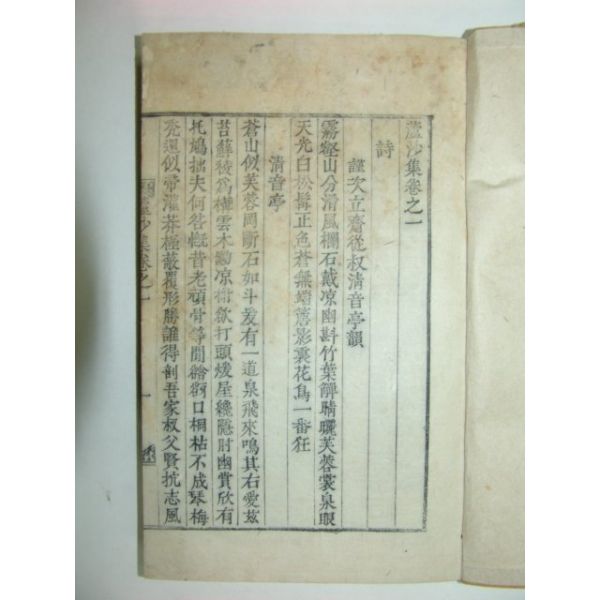 蘆沙集卷之一
詩
謹次立齋從叔淸音亭韻
霧壑山分滑風欄石戴凉幽斟竹葉解晴曬芙蓉裳泉眼
天光白松髯正色蒼無端落影裏花鳥一番狂
淸音亭
蒼山似芙蓉岡斷石如斗爰有一道泉飛來鳴其右愛玆
苔蘚稜爲構雲木勘凉榭欹打頭矮屋纔隱肘幽賞欣有
托鳩拙夫何咎慨昔老頑骨等閒谽谺口桐枯不成琴梅
禿還似帚灌莽極蔽覆形勝誰得剖吾家叔父賢抗志風
蘆沙集卷之一
一